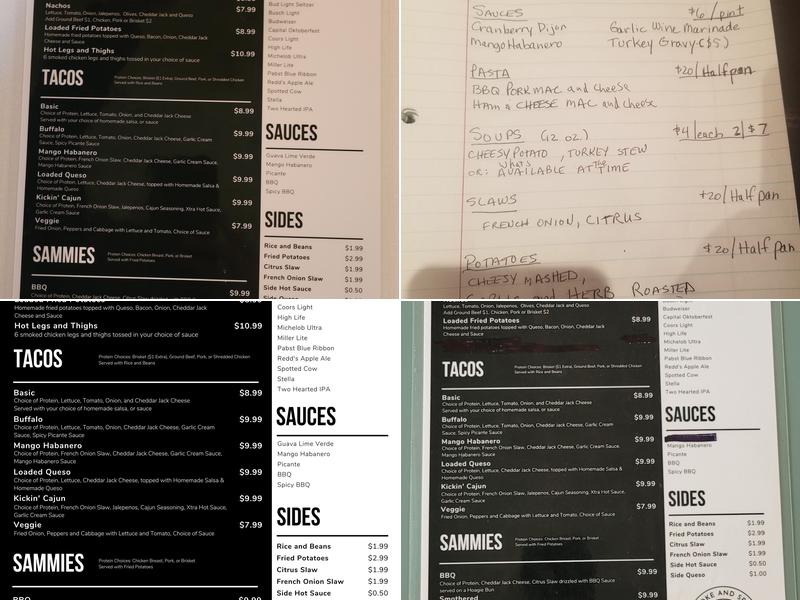 Nachos
Lettuce, Tomato, Onion, Jalapenos, Cheddar Jack Cheese and Queso
Add Ground Beef $1, Chicken, Pork or Brisket $2
Loaded Fried Potatoes $8.99
Homemade fried potatoes topped with Queso, Bacon, Onion, Cheddar Jack
Cheese and Sauce
Hot Legs and Thighs $10.99
6 smoked chicken legs and thighs tossed in your choice of sauce
TACOS
Protein Choices: Brisket ($1 Extra), Ground Beef, Pork, or Shredded Chicken
Served with Rice and Beans
Basic $8.99
Choice of Protein, Lettuce, Tomato, Onion, and Cheddar Jack Cheese
Served with your choice of homemade salsa, or sauce
Buffalo $9.99
Choice of Protein, Lettuce, Tomato, Onion, Cheddar Jack Cheese, Garlic Cream
Sauce, Spicy Picante Sauce
Mango Habanero $9.99
Choice of Protein, French Onion Slaw, Cheddar Jack Cheese, Garlic Cream Sauce,
Mango Habanero Sauce
Loaded Queso $9.99
Choice of Protein, Lettuce, Onion, Cheddar Jack Cheese, topped with Homemade Salsa &
Homemade Queso
Kickin' Cajun $9.99
Choice of Protein, French Onion Slaw, Jalapenos, Cajun Seasoning, Xtra Hot Sauce,
Garlic Cream Sauce
Veggie $7.99
Fried Onion, Peppers and Cabbage with Lettuce and Tomato, Choice of Sauce
SAMMIES
Protein Choices: Chicken Breast, Pork, or Brisket
Served with Fried Potatoes
BBQ $9.99
Bud Light Seltzer
Busch Light
Budweiser
Capital Oktoberfest
Coors Light
High Life
Michelob Ultra
Miller Lite
Pabst Blue Ribbon
Redd's Apple Ale
Spotted Cow
Stella
Two Hearted IPA
SAUCES
Guava Lime Verde
Mango Habanero
Picante
BBQ
Spicy BBQ
SIDES
Rice and Beans $1.99
Fried Potatoes $2.99
Citrus Slaw $1.99
French Onion Slaw $1.99
Side Hot Sauce $0.50
SAUCES $6/pint
Cranberry Dijon Garlic Wine Marinade
Mango Habanero Turkey Gravy ($5)
PASTA $20/Half pan
BBQ PORK MAC and Cheese
HAM & CHEESE MAC and cheese
SOUPS (12 oz.) $4/each 2/$7
CHEESY POTATO, TURKEY STEW
OR: what's AVAILABLE AT the TIME
SLAWS $20/Half pan
FRENCH ONION, CITRUS
POTATOES $20/Half pan
CHEESY MASHED,
HERB ROASTED
Homemade fried potatoes topped with Queso, Bacon, Onion, Cheddar Jack
Cheese and Sauce
Hot Legs and Thighs $10.99
6 smoked chicken legs and thighs tossed in your choice of sauce
TACOS
Protein Choices: Brisket ($1 Extra), Ground Beef, Pork, or Shredded Chicken
Served with Rice and Beans
Basic $8.99
Choice of Protein, Lettuce, Tomato, Onion, and Cheddar Jack Cheese
Served with your choice of homemade salsa, or sauce
Buffalo $9.99
Choice of Protein, Lettuce, Tomato, Onion, Cheddar Jack Cheese, Garlic Cream
Sauce, Spicy Picante Sauce
Mango Habanero $9.99
Choice of Protein, French Onion Slaw, Cheddar Jack Cheese, Garlic Cream Sauce,
Mango Habanero Sauce
Loaded Queso $9.99
Choice of Protein, Lettuce, Onion, Cheddar Jack Cheese, topped with Homemade Salsa &
Homemade Queso
Kickin' Cajun $9.99
Choice of Protein, French Onion Slaw, Jalapenos, Cajun Seasoning, Xtra Hot Sauce,
Garlic Cream Sauce
Veggie $7.99
Fried Onion, Peppers and Cabbage with Lettuce and Tomato, Choice of Sauce
SAMMIES
Protein Choices: Chicken Breast, Pork, or Brisket
Served with Fried Potatoes
Coors Light
High Life
Michelob Ultra
Miller Lite
Pabst Blue Ribbon
Redd's Apple Ale
Spotted Cow
Stella
Two Hearted IPA
SAUCES
Guava Lime Verde
Mango Habanero
Picante
BBQ
Spicy BBQ
SIDES
Rice and Beans $1.99
Fried Potatoes $2.99
Citrus Slaw $1.99
French Onion Slaw $1.99
Side Hot Sauce $0.50
Lettuce, Tomato, Onion, Jalapenos, Cheddar Jack Cheese and Queso
Add Ground Beef $1, Chicken, Pork or Brisket $2
Loaded Fried Potatoes $8.99
Homemade fried potatoes topped with Queso, Bacon, Onion, Cheddar Jack
Cheese and Sauce
TACOS
Protein Choices: Brisket ($1 Extra), Ground Beef, Pork, or Shredded Chicken
Served with Rice and Beans
Basic $8.99
Choice of Protein, Lettuce, Tomato, Onion, and Cheddar Jack Cheese
Served with your choice of homemade salsa, or sauce
Buffalo $9.99
Choice of Protein, Lettuce, Tomato, Onion, Cheddar Jack Cheese, Garlic Cream
Sauce, Spicy Picante Sauce
Mango Habanero $9.99
Choice of Protein, French Onion Slaw, Cheddar Jack Cheese, Garlic Cream Sauce,
Mango Habanero Sauce
Loaded Queso $9.99
Choice of Protein, Lettuce, Onion, Cheddar Jack Cheese, topped with Homemade Salsa &
Homemade Queso
Kickin' Cajun $9.99
Choice of Protein, French Onion Slaw, Jalapenos, Cajun Seasoning, Xtra Hot Sauce,
Garlic Cream Sauce
Veggie $7.99
Fried Onion, Peppers and Cabbage with Lettuce and Tomato, Choice of Sauce
SAMMIES
Protein Choices: Chicken Breast, Pork, or Brisket
Served with Fried Potatoes
BBQ $9.99
Choice of Protein, Cheddar Jack Cheese, Citrus Slaw drizzled with BBQ Sauce
served on a Hoagie Bun
Smothered $9.99
Budweiser
Capital Oktoberfest
Coors Light
High Life
Michelob Ultra
Miller Lite
Pabst Blue Ribbon
Redd's Apple Ale
Spotted Cow
Stella
Two Hearted IPA
SAUCES
Mango Habanero
Picante
BBQ
Spicy BBQ
SIDES
Rice and Beans $1.99
Fried Potatoes $2.99
Citrus Slaw $1.99
French Onion Slaw $1.99
Side Hot Sauce $0.50
Side Queso $1.00